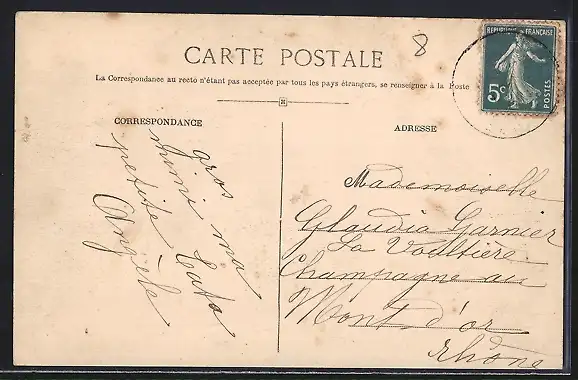 8
CARTE POSTALE
La Correspondance au recto n'étant pas acceptée par tous les pays étrangers, se renseigner à la Poste
REPUBLIQUE FRANÇAISE
5c
POSTES
CORRESPONDANCE
gros
mimi ma
petite Cato
Angèle
ADRESSE
Mademoiselle
Glaudia Garnier
La Voultière
Champagne au
Mont d'or
Rhône